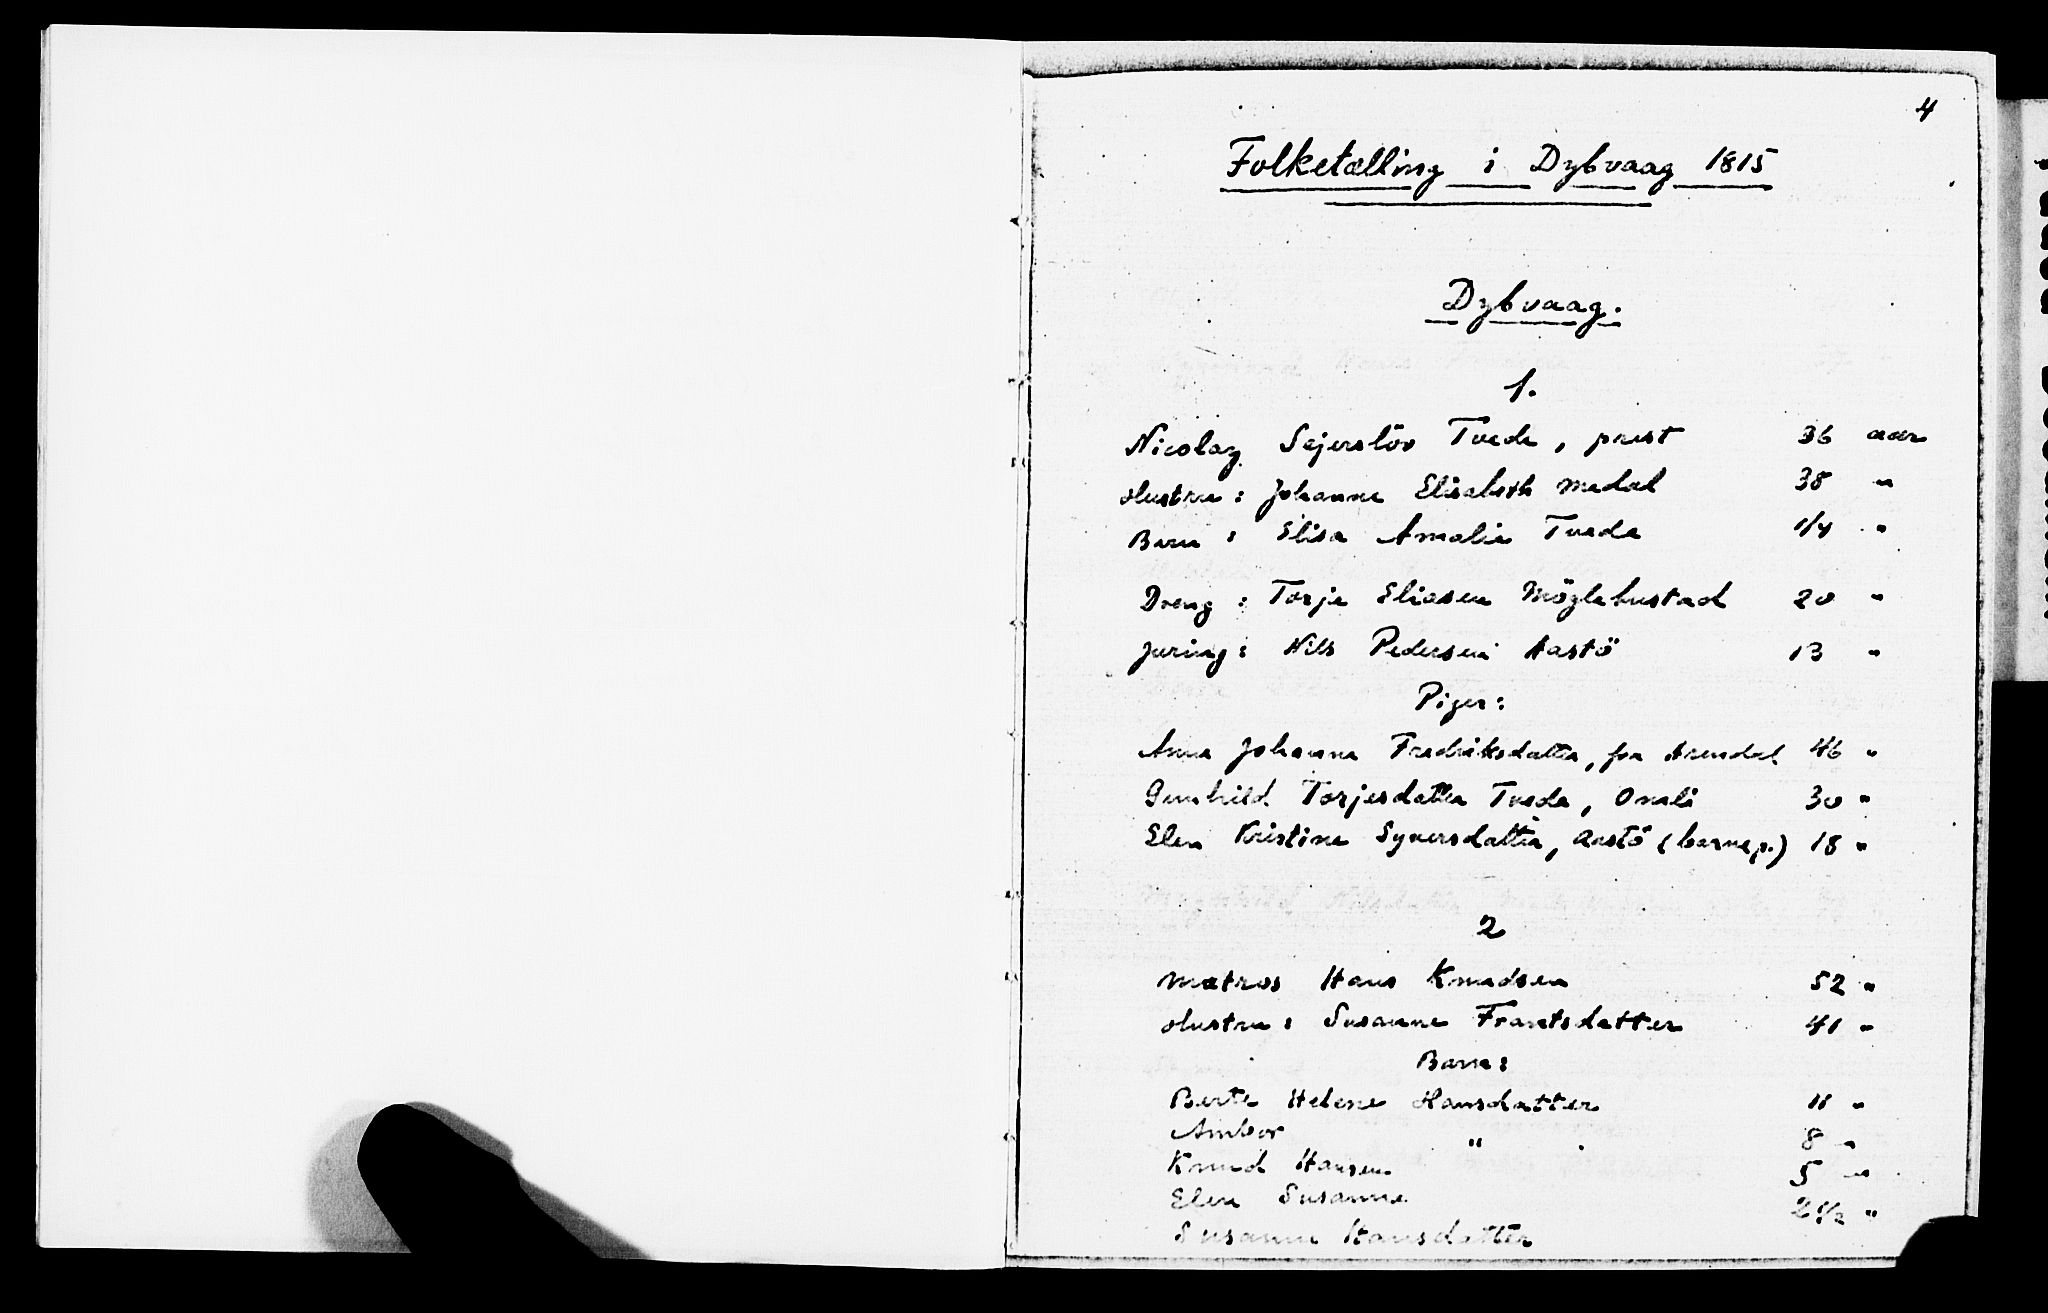 4
Folketælling i Dybvaag 1815
Dybvaag.
1.
Nicolay Sejerslöv Tvede, prest 36 aar
Hustru: Johanne Elisabeth Medal 38 "
Barn: Elisa Amalia Tvede 1/4 "
Dreng: Torje Eliasen Möglebustad 20 "
Juring: Nils Pedersen Aastö 13 "
Piger:
Anne Johanne Fredriksdatter, fra Arendal 46 "
Gunhild Torjesdatter Tvede, Omli 30 "
Elen Kristine Syversdatter, Aastö (barnep.) 18 "
2
Matros Hans Knudsen 52 "
Hustru: Susanne Frantsdatter 41 "
Barn:
Berte Helene Hansdatter 11 "
Ambor " 8 "
Knud Hansen 5 "
Elen Susanne 2 1/2 "
Susanne Hansdatter